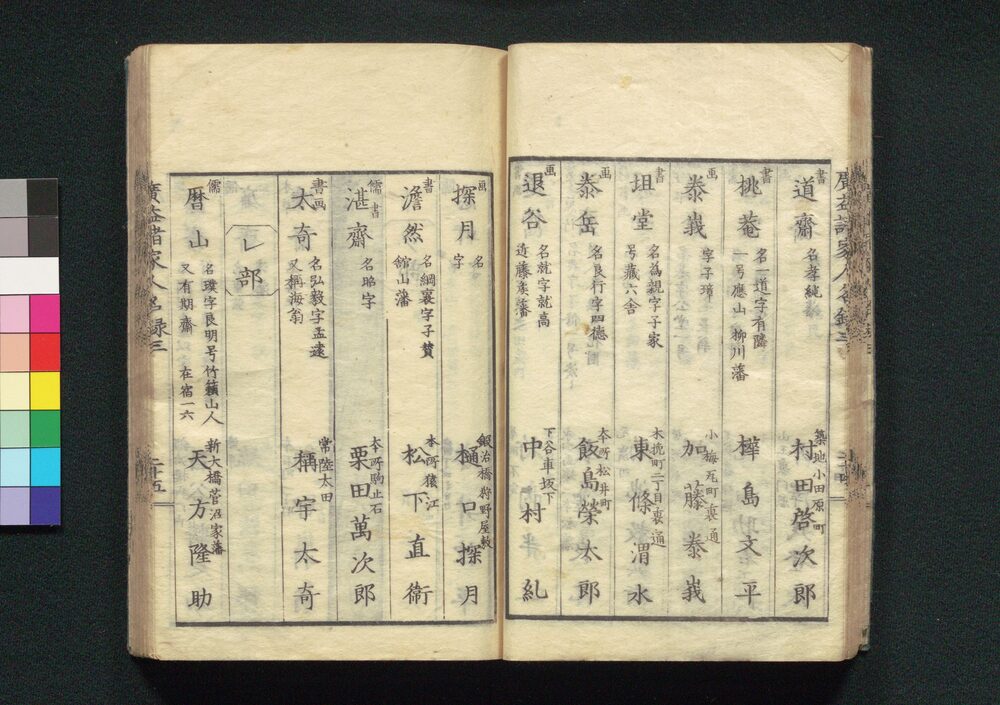 書
道齋
名孝純
築地小田原町
村田啓次郎
書
桃菴
名一道字有隣
一号應山 柳川藩
樺島文平
画
泰峩
字子璋
小梅瓦町裏通
加藤泰峩
書
坦堂
名為親字子家
号藏六舎
木挽町二丁目裏通
東條渭水
画
泰岳
名良行字四德
本所松井町
飯島榮太郎
画
退谷
名就字就高
遠藤矦藩
下谷車坂下
中村糺
画
探月
名
字
鍛治橋狩野屋敷
樋口探月
書
澹然
名綱襄字子賛
舘山藩
本所猿江
松下直衛
儒書
湛齋
名昭字
本所駒止石
栗田萬次郎
書画
太奇
名弘毅字孟遠
又稱海翁
常陸太田
稱宇太奇
レ部
儒
暦山
名璞字良明号竹籟山人
又有期齋 在宿一六
新大橋菅沼家藩
天方隆助
廣益諸家人名録三
二十五